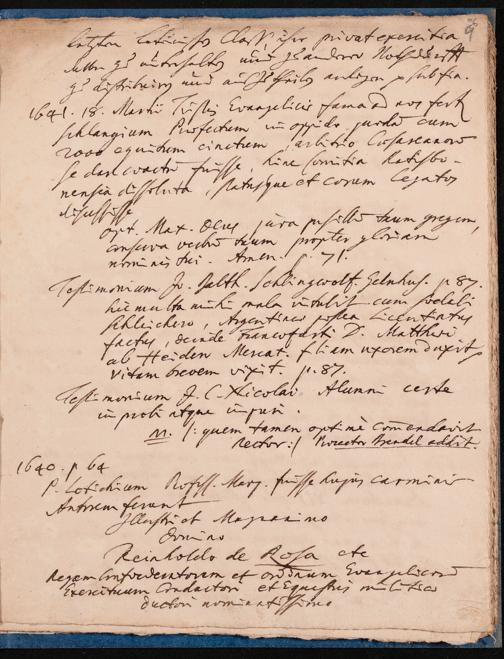 letzten Lationistes Class. ihre privat exercitia
und zu andern Nothdurfft
zu distribuiren und
1641. 18. Martii Tristis Evangelicis fama ad nos fertur
Schlangium Profectum in oppido quodam cum
2000 equitum cinctum, arbitrio Caesareanorum
se dare coactum fuisse, hinc comitia Ratisbo-
nensia dissoluta, statusque et eorum Legatos
discessisse
opt. Max. Deus, jura pusillum tuum gregem,
conserva verbum tuum propter gloriam
nominis tui. Amen. p. 71.
Testimonium Jo. Balth. Schlingwolf. Gelnhus. p. 87.
hic multa mihi mala intulit cum sodali
Schleichero, Argentinae postea Licentiatus
factus, deinde Francofurti D. Matthaei
ab Heiden Mercat. filiam uxorem duxit,
vitam brevem vixit. p. 87.
Testimonium J. C. Nicolai Alumni certe
improbi atque impuri.
M. /: quem tamen optime comendavit
Rector :/ Prorector Brendel addit.
1640. p 64
P. Lotichium Profess. Marp. fuisse hujus carminis
Autorem ferunt
Illustri et Magnanimo
Domino
Reinholdo de Rosa etc
Regum Confoederatorum et ordinum Evangelicorum
Exercituum Conductori et Equestris militiae
ductori nominatissimo